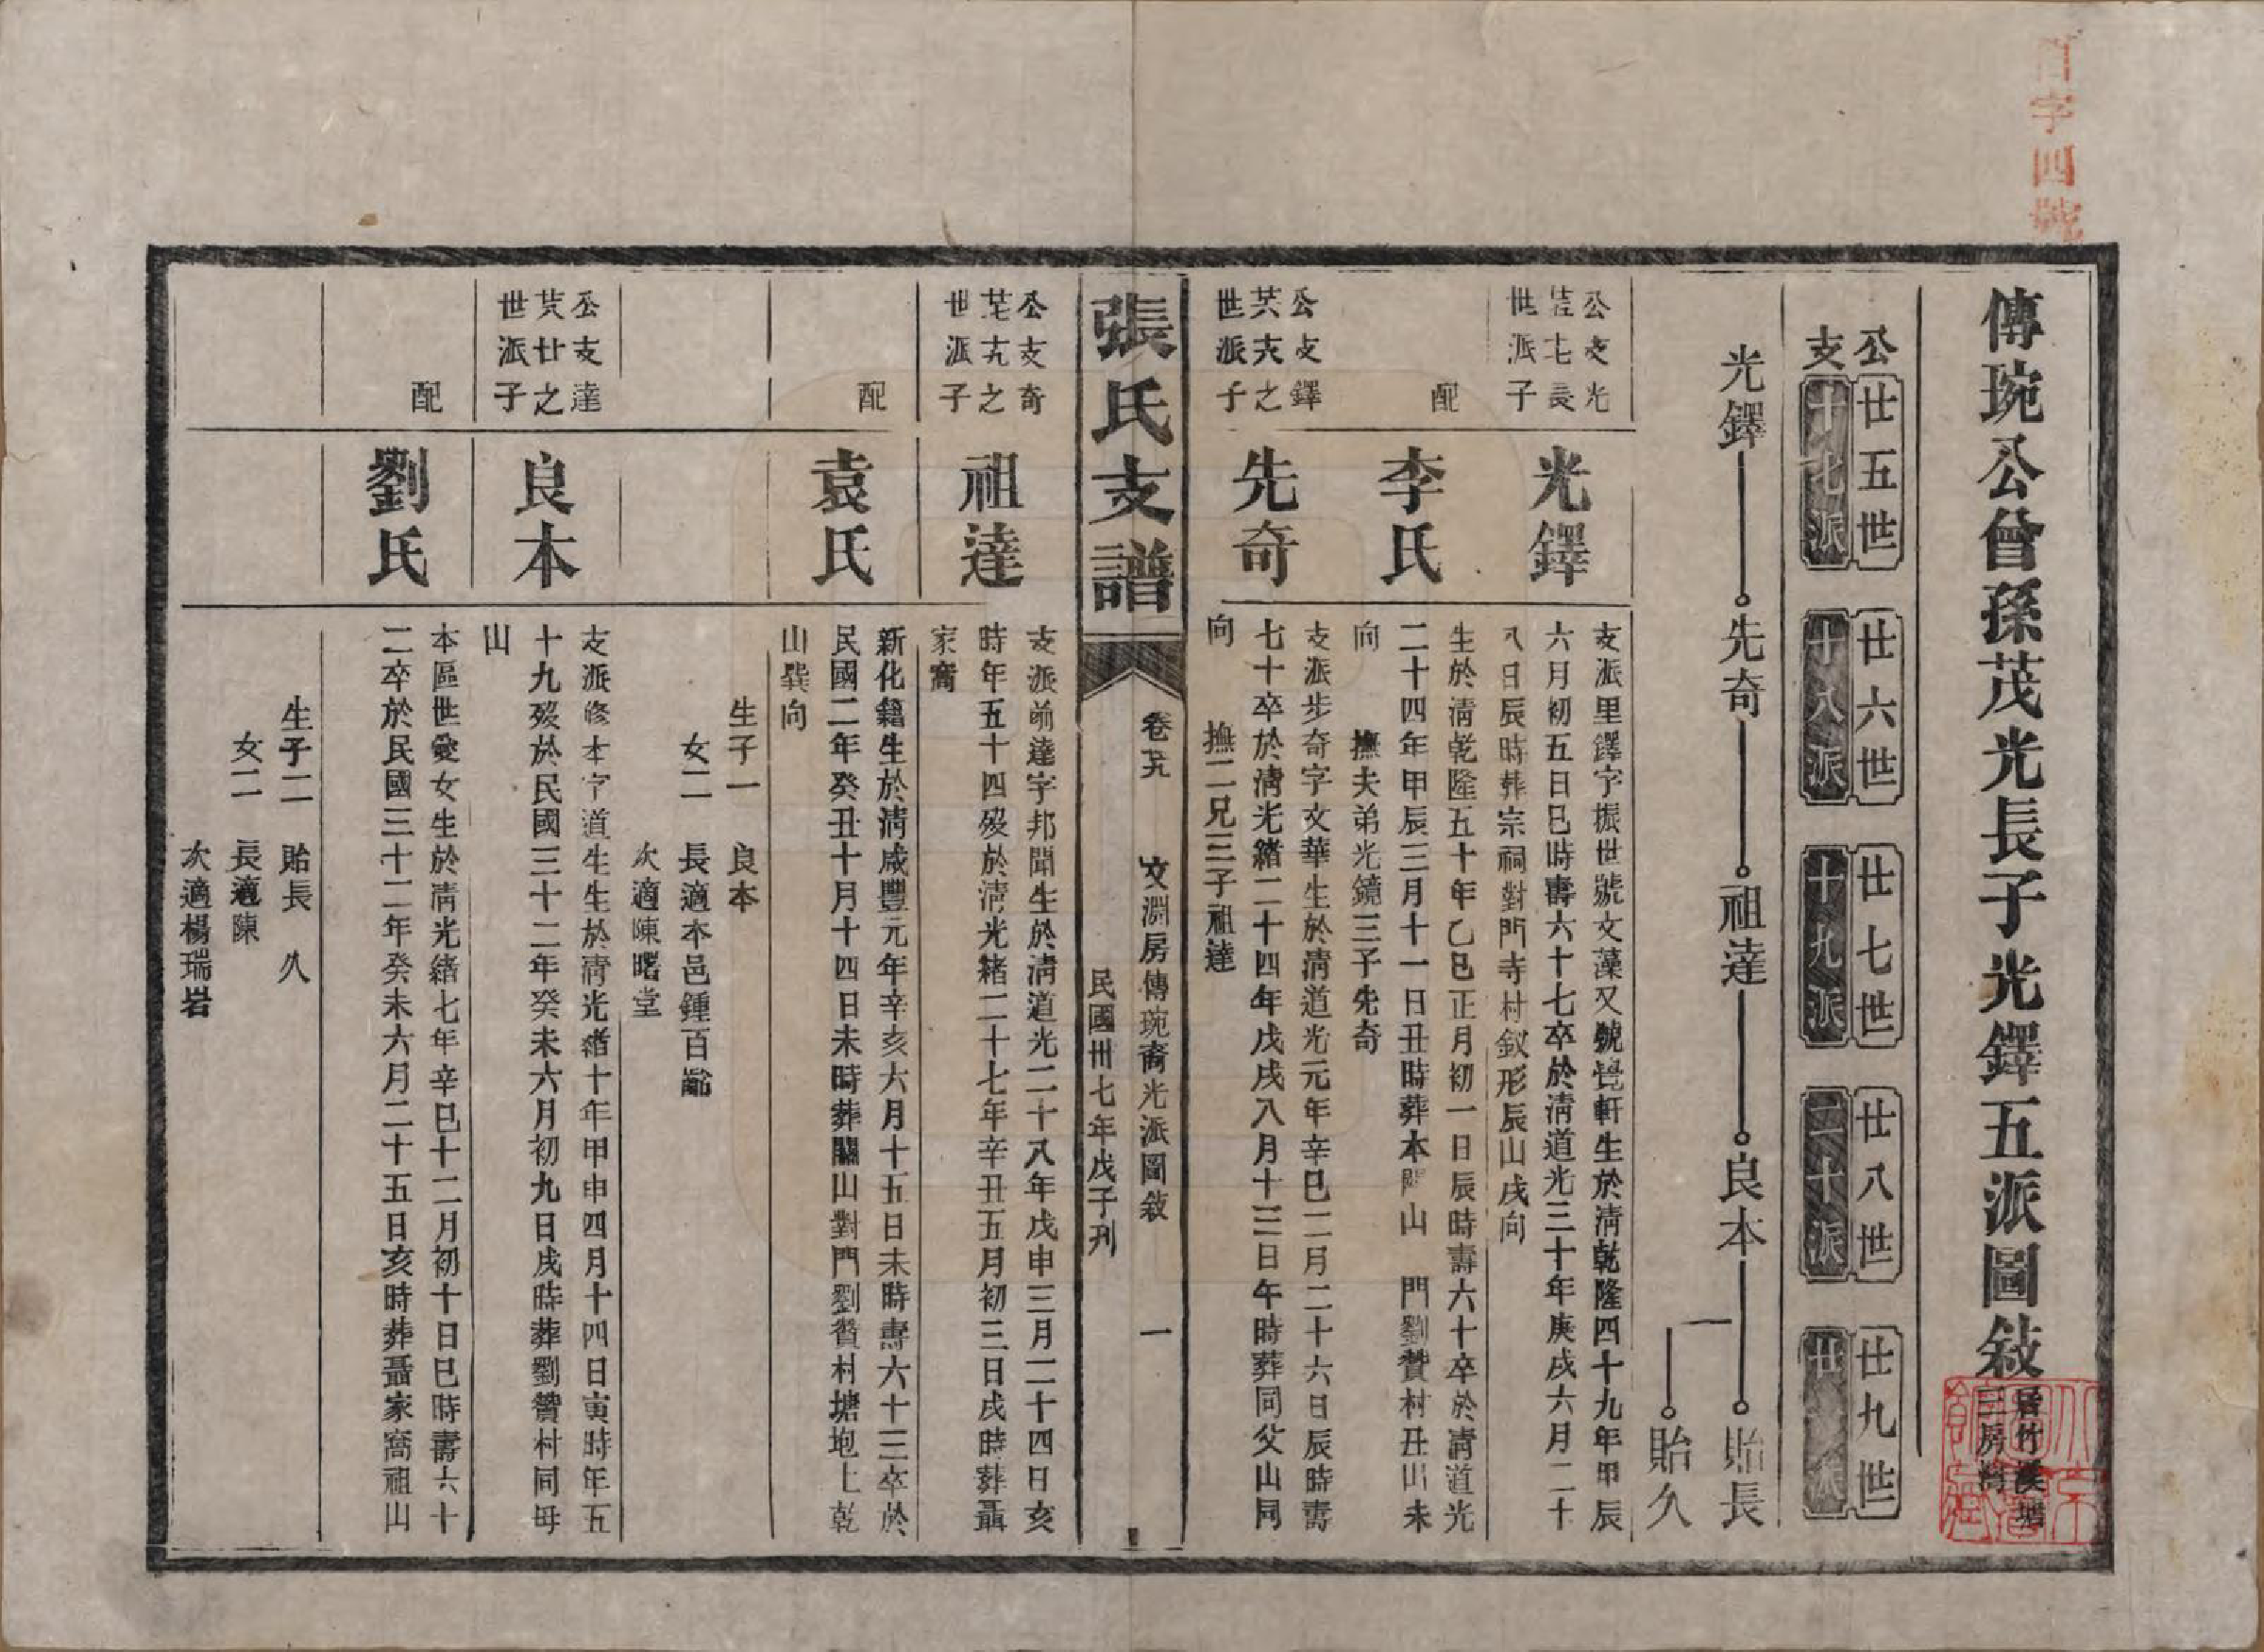 字四號
傳琬公曾孫茂光長子光鐸五派圖敍
居竹溪塘
三房灣
公
支
廿五世
十七派
廿六世
十八派
廿七世
十九派
廿八世
二十派
廿九世
廿 派
光鐸
先奇
祖達
良本
貽長
貽久
公支光
芸七長
世派子
光鐸
支派里鐸字振世號文藻又號覺軒生於清乾隆四十九年甲辰
六月初五日巳時壽六十七卒於清道光三十年庚戌六月二十
八日辰時葬宗祠對門寺村釵形辰山戌向
配
李氏
生於清乾隆五十年乙巳正月初一日辰時壽六十卒於清道光
二十四年甲辰三月十一日丑時葬本關山 門劉贊村丑山未
向
撫夫弟光鏡三子先奇
公支鐸
共六之
世派子
先奇
支派步奇字文華生於清道光元年辛巳二月二十六日辰時壽
七十卒於清光緒二十四年戊戌八月十三日午時葬同父山同
向
撫二兄三子祖達
張氏支譜
卷
文淵房傳琬裔光派圖敍
一
民國卅七年戊子刊
公支奇
芜九之
世派子
祖達
支派節達字邦聞生於清道光二十八年戊申三月二十四日亥
時年五十四歿於清光緒二十七年辛丑五月初三日戌時葬聶
家窩
配
袁氏
新化籍生於清咸豐元年辛亥六月十五日未時壽六十三卒於
民國二年癸丑十月十四日未時葬關山對門劉贊村塘坳上乾
山巽向
生子一 良本
女二 長適本邑鍾百齡
次適陳曙堂
公支達
芡廿之
世派子
良本
支派修本字道生生於清光緒十年甲申四月十四日寅時年五
十九歿於民國三十二年癸未六月初九日戌時葬劉贊村同母
山
配
劉氏
本區世愛女生於清光緒七年辛巳十二月初十日巳時壽六十
二卒於民國三十二年癸未六月二十五日亥時葬聶家窩祖山
生子二 貽長 久
女二 長適陳
次適楊瑞岩